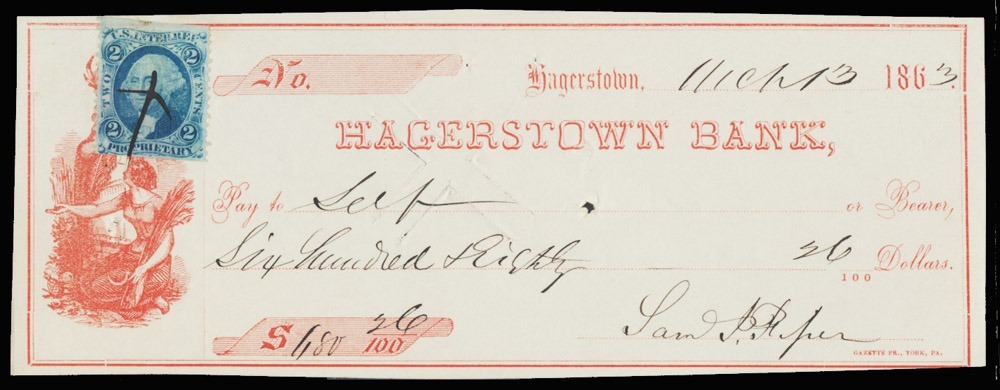 U.S. INTER. REV.
2 2
TWO CENTS
2 2
PROPRIETARY
No.
Hagerstown, Mch 13 1863.
HAGERSTOWN BANK,
Pay to Self or Bearer,
Six hundred & Eighty 26/100 Dollars.
$ 680 26/100
Sam
GAZETTE PR., YORK, PA.